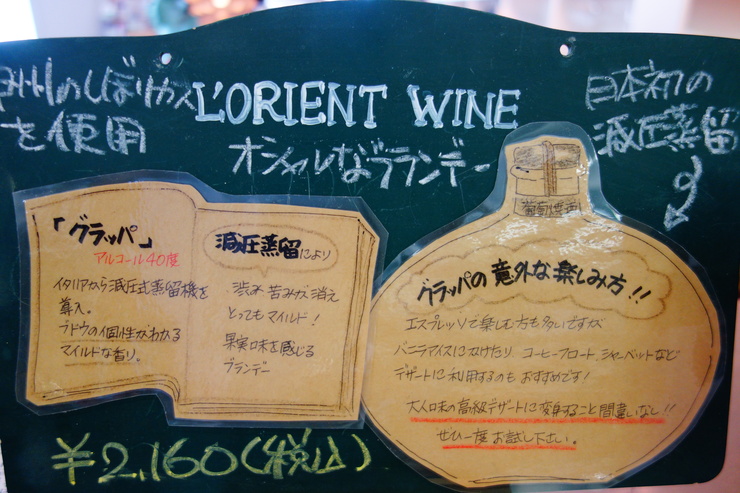 のしぼりカス
を使用
L'ORIENT WINE
オシャレなブランデー
日本初の
減圧蒸留
「グラッパ」
アルコール40度
イタリアから減圧式蒸留機を
導入。
ブドウの個性がわかる
マイルドな香り。
減圧蒸留により
渋み 苦みが消え
とってもマイルド!
果実味を感じる
ブランデー
葡萄
グラッパの意外な楽しみ方!!
エスプレッソで楽しむ方も多いですが
バニラアイスにかけたり、コーヒーフロート、シャーベットなど
デザートに利用するのもおすすめです!
大人味の高級デザートに変身すること間違いなし!!
ぜひ一度お試し下さい。
¥2,160(税込)